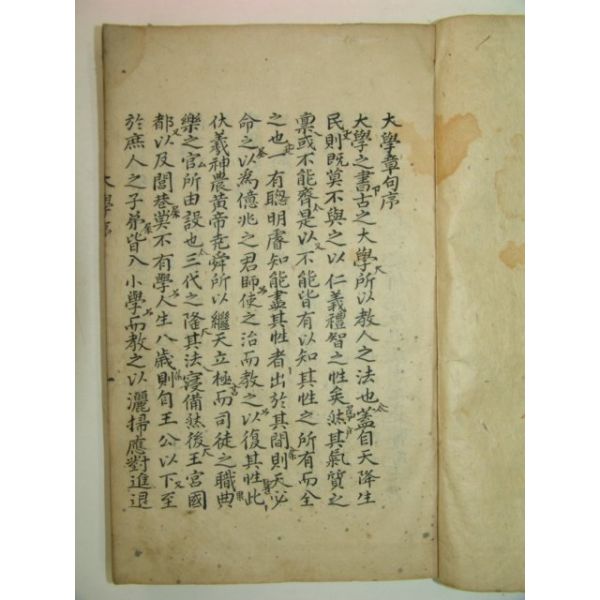 大學章句序
大學之書古之大學所以教人之法也蓋自天降生
民則既莫不與之以仁義禮智之性矣然其氣質之
禀或不能齊是以不能皆有以知其性之所有而全
之也一有聰明睿知能盡其性者出於其間則天必
命之以爲億兆之君師使之治而教之以復其性此
伏羲神農黃帝堯舜所以繼天立極而司徒之職典
樂之官所由設也三代之隆其法寖備然後王宮國
都以及閭巷莫不有學人生八歲則自王公以下至
於庶人之子弟皆入小學而教之以灑掃應對進退
大學序